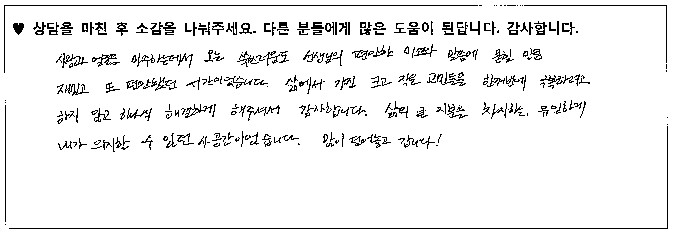 ♥ 상담을 마친 후 소감을 나눠주세요. 다른 분들에게 많은 도움이 된답니다. 감사합니다.
얼굴을 마주하는데서 오는 쑥쓰러움도 선생님의 편안한 미소와 말씀에 풀린 만큼
재밌고 또 편안했던 시간이었습니다. 삶에서 가진 크고 작은 고민들을 한꺼번에 극복하려고
하지 않고 하나씩 해결하게 해주셔서 감사합니다. 삶의 큰 지분을 차지하는, 유일하게
내가 의지할 수 있던 시공간이었습니다. 많이 덜어놓고 갑니다!